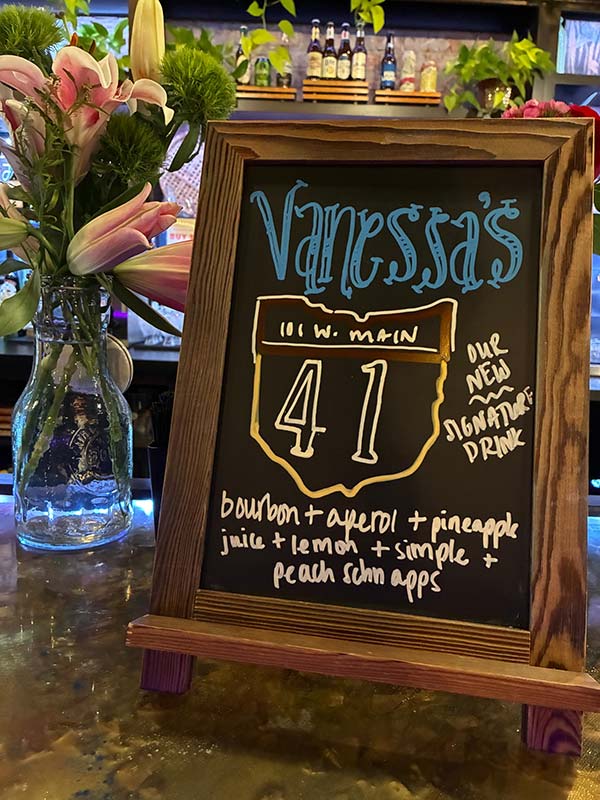 Vanessa's
101 W. MAIN
41
OUR
NEW
SIGNATURE
DRINK
bourbon + aperol + pineapple
juice + lemon + simple +
peach schnapps